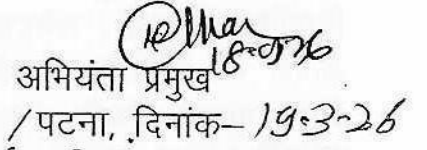 18-3-26
अभियंता प्रमुख
/ पटना, दिनांक– 19-3-26